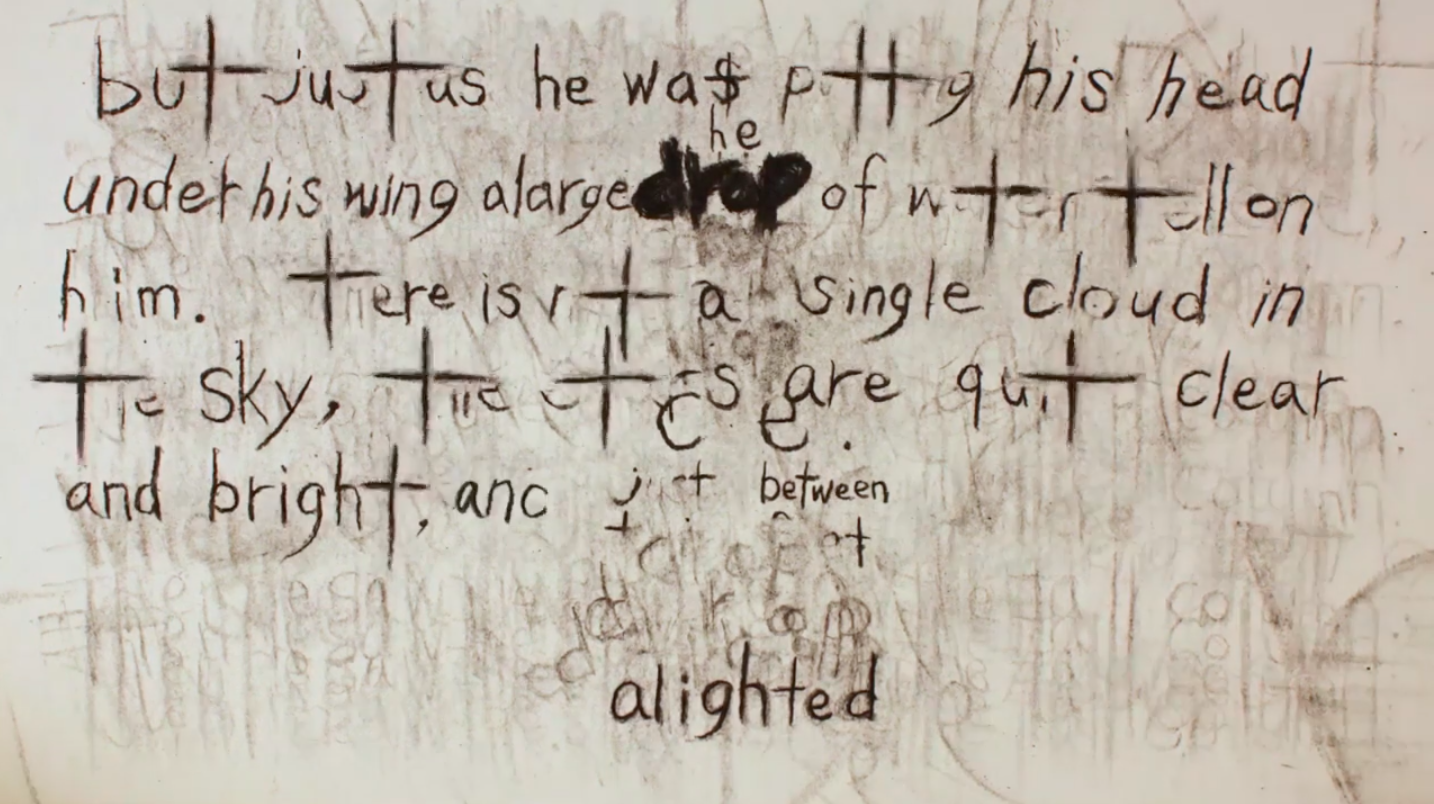 but just us he was p tt g his head
he
under his wing a large drop of water fell on
him. tere is rt a single cloud in
t e sky, the are quit clear
and bright, anc between
alighted